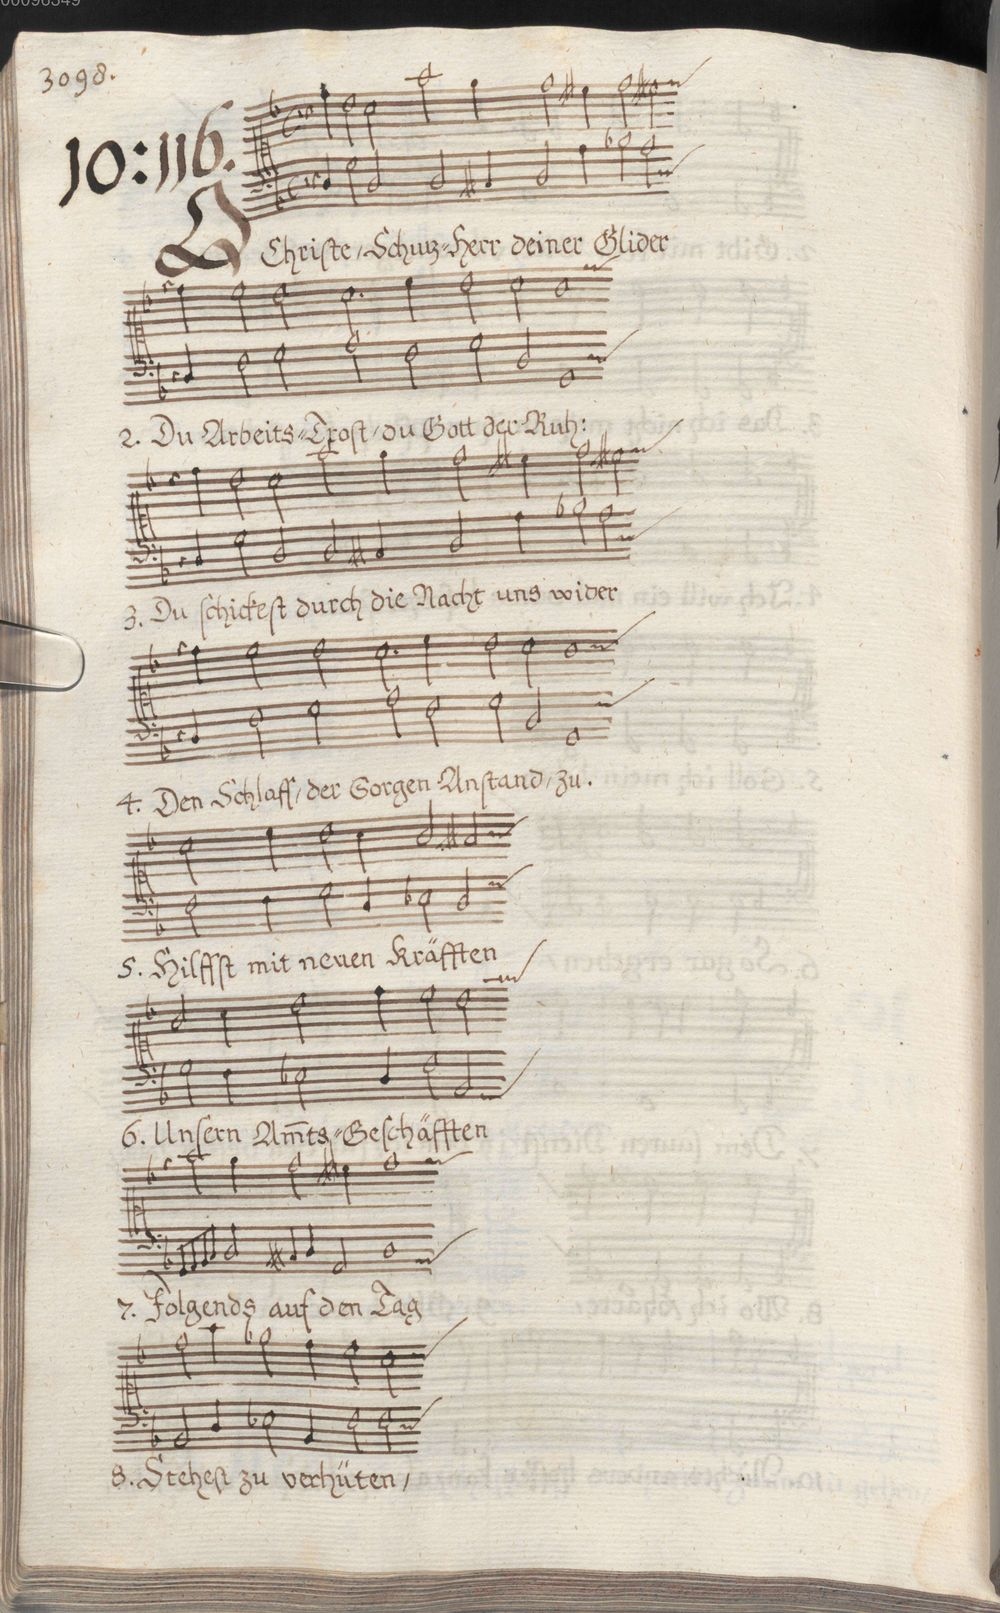 00096349
3098.
10:116.
O Christe, Schuz-Herr deiner Glider
2. Du Arbeits-Trost, du Gott der Ruh:
3. Du schickest durch die Nacht uns wider
4. Den Schlaff, der Sorgen Anstand, zu.
5. Hilffst mit neuen Kräfften
6. Unsern Am̅ts-Geschäfften
7. Folgends auf den Tag
8. Stehest zu verhüten,